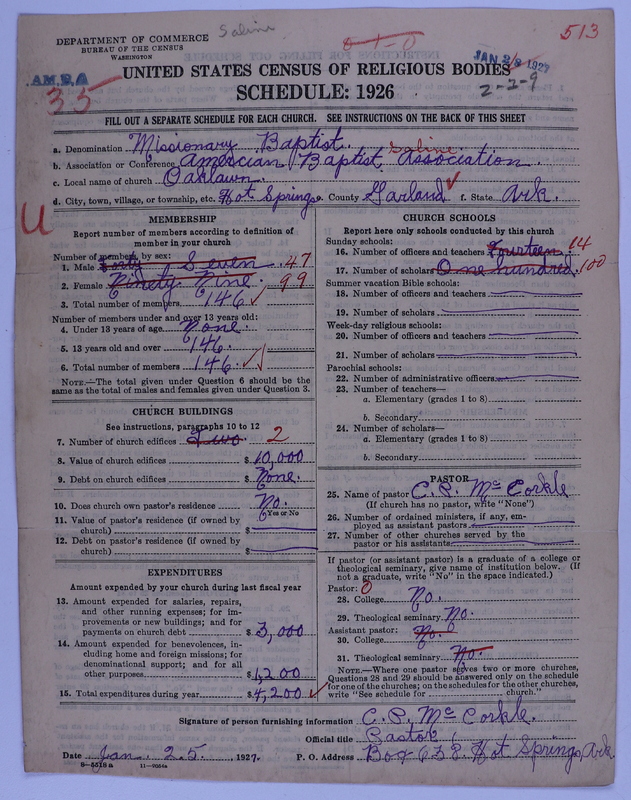 DEPARTMENT OF COMMERCE
BUREAU OF THE CENSUS
WASHINGTON
Saline
513
JAN 28 1927
2-2-9
A.M.B.A
35
UNITED STATES CENSUS OF RELIGIOUS BODIES
SCHEDULE: 1926
FILL OUT A SEPARATE SCHEDULE FOR EACH CHURCH. SEE INSTRUCTIONS ON THE BACK OF THIS SHEET
a. Denomination Missionary Baptist
Saline
b. Association or Conference American Baptist Association
c. Local name of church Oaklawn
d. City, town, village, or township, etc. Hot Springs e. County Garland ✓ f. State Ark.
U
MEMBERSHIP
Report number of members according to definition of
member in your church
Number of members, by sex:
1. Male Forty Seven 47
2. Female Ninety Nine 99
3. Total number of members 146 ✓
Number of members under and over 13 years old:
4. Under 13 years of age None.
5. 13 years old and over 146.
6. Total number of members 146 ✓
NOTE.—The total given under Question 6 should be the
same as the total of males and females given under Question 3.
CHURCH BUILDINGS
See instructions, paragraphs 10 to 12
7. Number of church edifices Two 2
8. Value of church edifices $ 10,000
9. Debt on church edifices $ None.
10. Does church own pastor's residence No.
Yes or No
11. Value of pastor's residence (if owned by
church) $
12. Debt on pastor's residence (if owned by
church) $
EXPENDITURES
Amount expended by your church during last fiscal year
13. Amount expended for salaries, repairs,
and other running expenses; for im-
provements or new buildings; and for
payments on church debt $ 3,000
14. Amount expended for benevolences, in-
cluding home and foreign missions; for
denominational support; and for all
other purposes $ 1,200
15. Total expenditures during year $ 4,200 ✓
CHURCH SCHOOLS
Report here only schools conducted by this church
Sunday schools:
16. Number of officers and teachers Fourteen 14
17. Number of scholars One hundred. 100
Summer vacation Bible schools:
18. Number of officers and teachers
19. Number of scholars
Week-day religious schools:
20. Number of officers and teachers
21. Number of scholars
Parochial schools:
22. Number of administrative officers
23. Number of teachers—
a. Elementary (grades 1 to 8)
b. Secondary
24. Number of scholars—
a. Elementary (grades 1 to 8)
b. Secondary
PASTOR
25. Name of pastor C. P. McCorkle
(If church has no pastor, write "None")
26. Number of ordained ministers, if any, em-
ployed as assistant pastors
27. Number of other churches served by the
pastor or his assistants
If pastor (or assistant pastor) is a graduate of a college or
theological seminary, give name of institution below. (If
not a graduate, write "No" in the space indicated.)
Pastor: 0
28. College No.
29. Theological seminary No.
Assistant pastor: 0
30. College No.
31. Theological seminary No.
NOTE.—Where one pastor serves two or more churches,
Questions 28 and 29 should be answered only on the schedule
for one of the churches; on the schedules for the other churches,
write "See schedule for ________ church."
Signature of person furnishing information C. P. McCorkle.
Official title Pastor
Date Jan. 25, 1927. P. O. Address Box 638 Hot Springs, Ark.
8—5518a 11—9064a